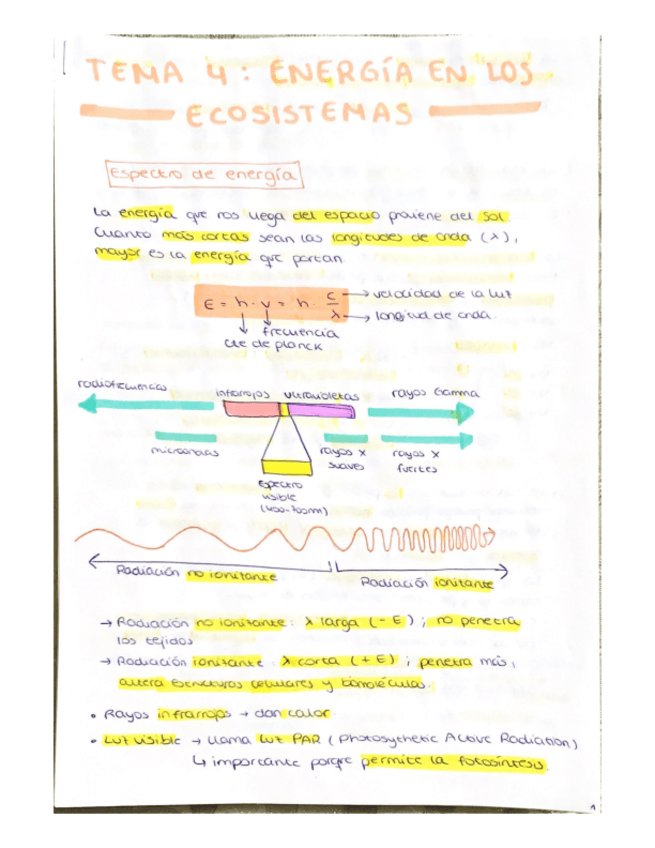 TEMA 4: ENERGÍA EN LOS
ECOSISTEMAS
Espectro de energía
La energía que nos llega del espacio proviene del Sol.
Cuanto más cortas sean las longitudes de onda (λ),
mayor es la energía que portan.
E = h · v = h · c/λ
→ velocidad de la luz
→ longitud de onda.
frecuencia
cte de planck
radiofrecuencias
infrarrojos ultravioletas
rayos Gamma
microondas
rayos X
suaves
rayos X
fuertes
Espectro
visible
(400-700nm)
Radiación no ionizante
Radiación ionizante
→ Radiación no ionizante: λ larga (- E) ; no penetra
los tejidos
→ Radiación ionizante: λ corta (+ E) ; penetra más,
altera estructuras celulares y biomoléculas.
• Rayos infrarrojos → dan calor.
• Luz visible → llama luz PAR (Photosythetic Active Radiation)
↳ importante porque permite la fotosíntesis.
1